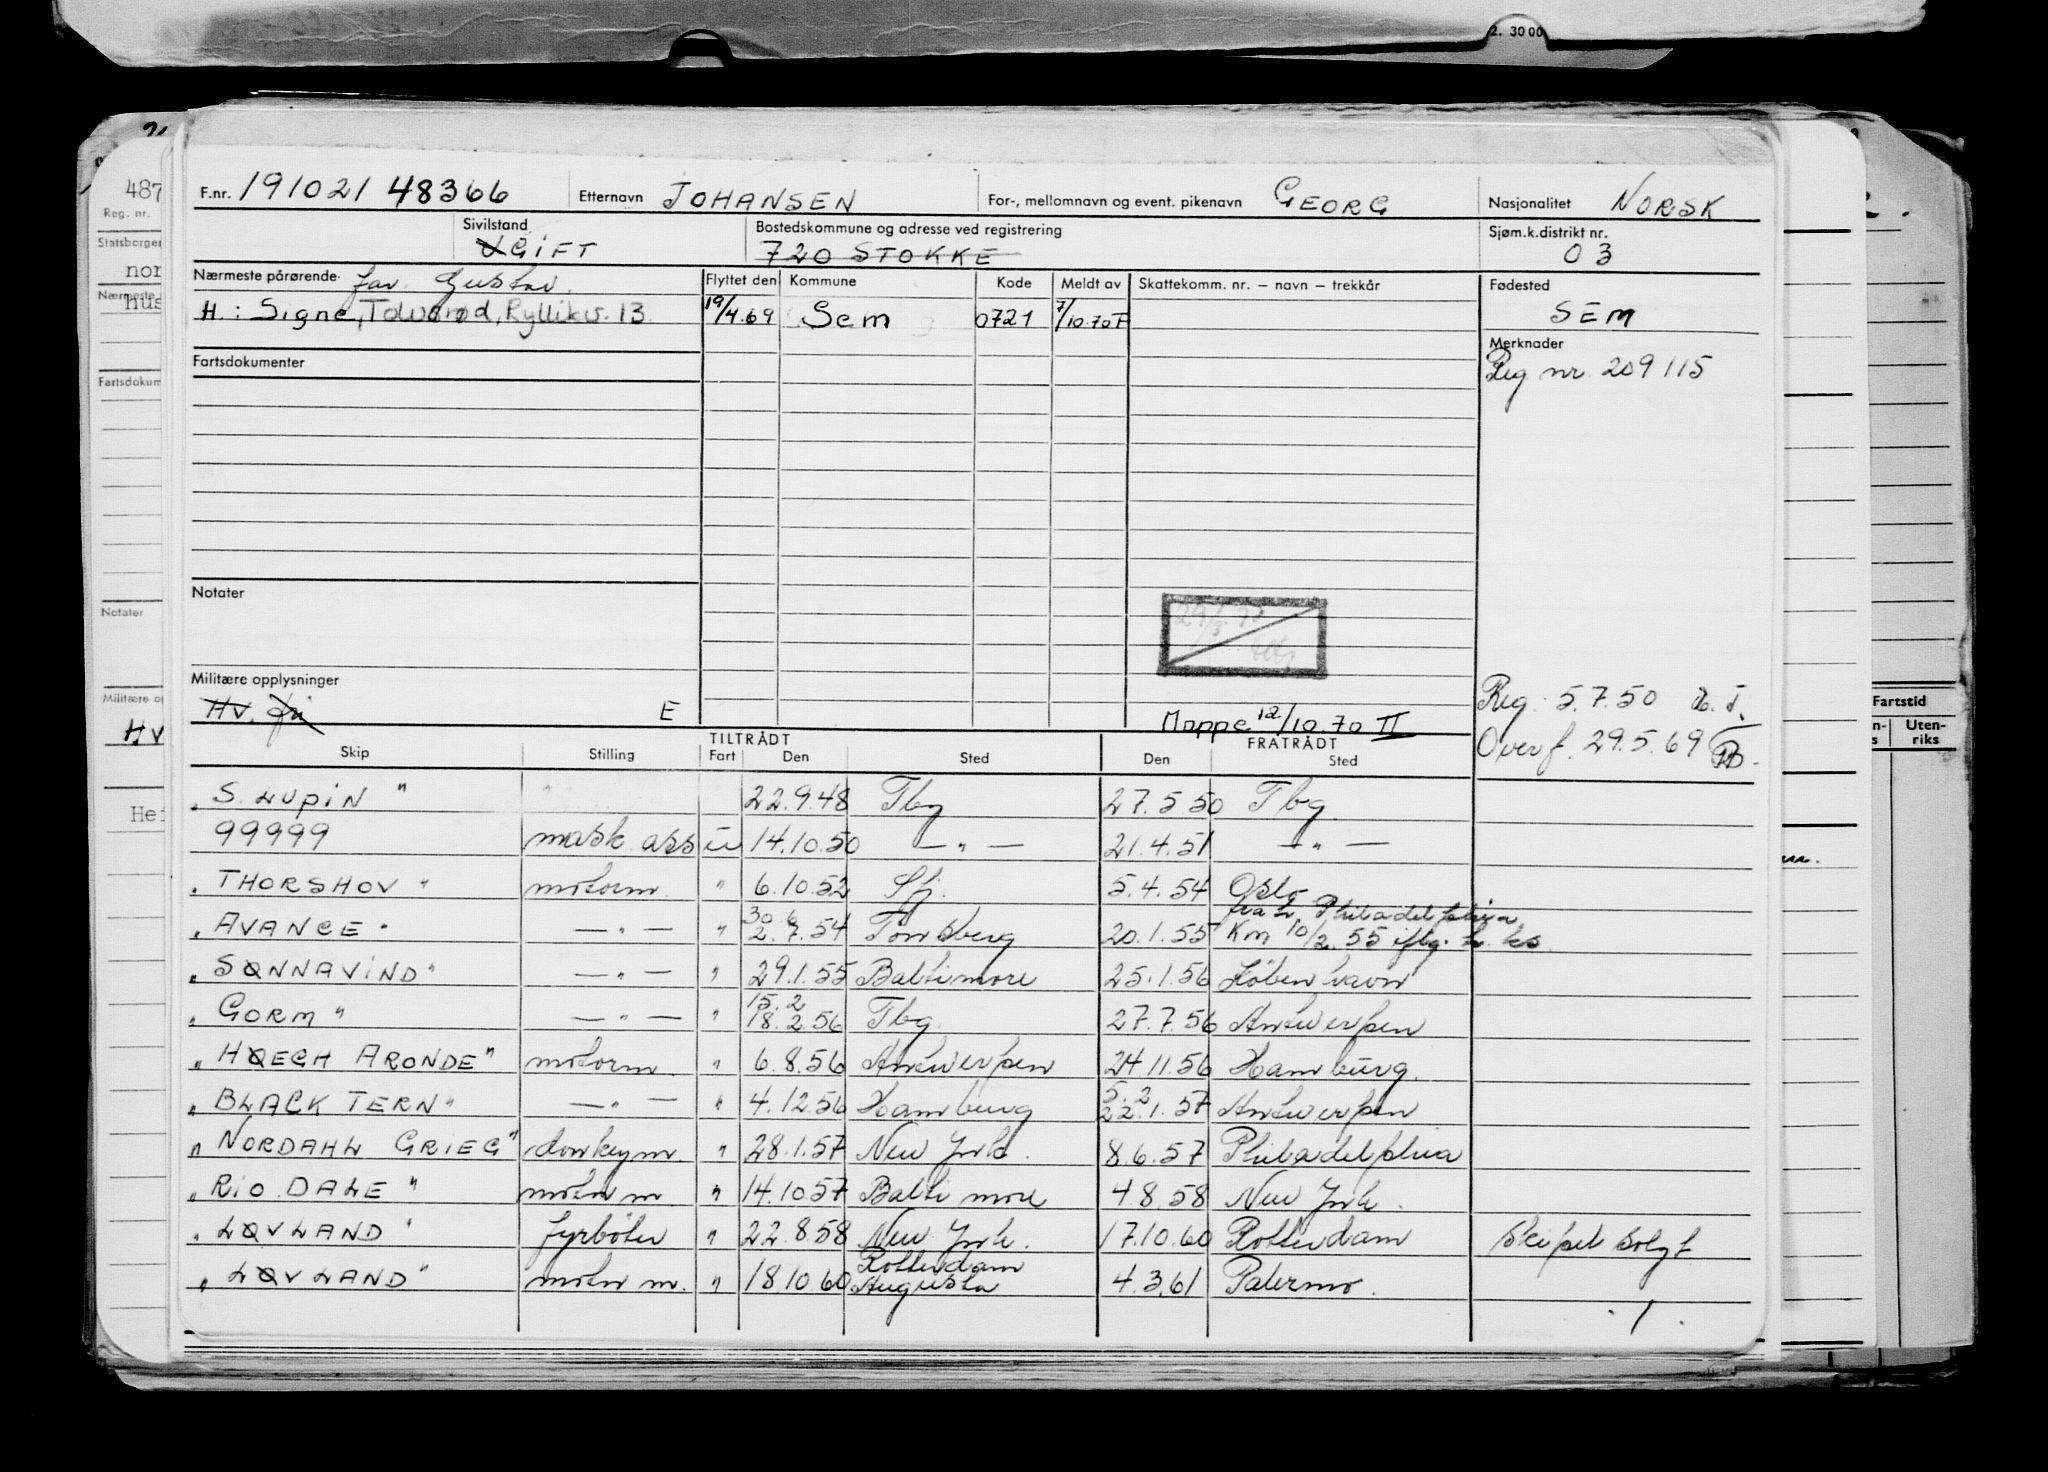 2. 30 00
487
Reg. nr.
Statsborger
nor
Nærmeste
hus
Fartsdokum
Notater
Militære op
HV
Hei
F.nr. 191021 48366 Etternavn JOHANSEN For-, mellomnavn og event. pikenavn GEORG Nasjonalitet NORSK
Sivilstand Bostedskommune og adresse ved registrering Sjøm.k.distrikt nr.
UGIFT 720 STOKKE 03
Nærmeste pårørende far Gustav. Flyttet den Kommune Kode Meldt av Skattekomm. nr. – navn – trekkår Fødested
H.: Signe, Tolvsrød, Ryllikvs. 13. 19/4.69 Sem 0721 7/10.70 F SEM
Fartsdokumenter Merknader
Reg nr. 209115
Notater
Militære opplysninger
HV. fri E Mappe 12/10.70 II
Reg. 5.7.50
Overf. 29.5.69
TILTRÅDT FRATRÅDT
Skip Stilling Fart Den Sted Den Sted
" S. LUPIN " 22.9.48 Tbg 27.5.50 Tbg.
99999 mask. ass u 14.10.50 — " — 21.4.51 — " —
" THORSHOV " motorm. " 6.10.52 Sfj. 5.4.54 Oslo
30.6 Philadelphia
" AVANCE " — " — " 2.7.54 Tønsberg 20.1.55 Km 10/2.55 iflg.
" SØNNAVIND " — " — " 29.1.55 Baltimore 25.1.56 København
15.2
" GORM " — " — " 18.2.56 Tbg. 27.7.56 Antwerpen
" HØEGH ARONDE " motorm. " 6.8.56 Antwerpen 24.11.56 Hamburg.
5.2
" BLACK TERN " — " — " 4.12.56 Hamburg 22.1.57 Antwerpen
" NORDAHL GRIEG " donkeym. " 28.1.57 New York. 8.6.57 Philadelphia
" RIO DALE " motor m " 14.10.57 Baltimore 4.8.58 New York.
" LØVLAND " fyrbøter " 22.8.58 New York. 17.10.60 Rotterdam Skipet solgt
Rotterdam
" LØVLAND " motor m. " 18.10.60 Augusta 4.3.61 Palermo.
1.
Fartstid
Uten-
riks